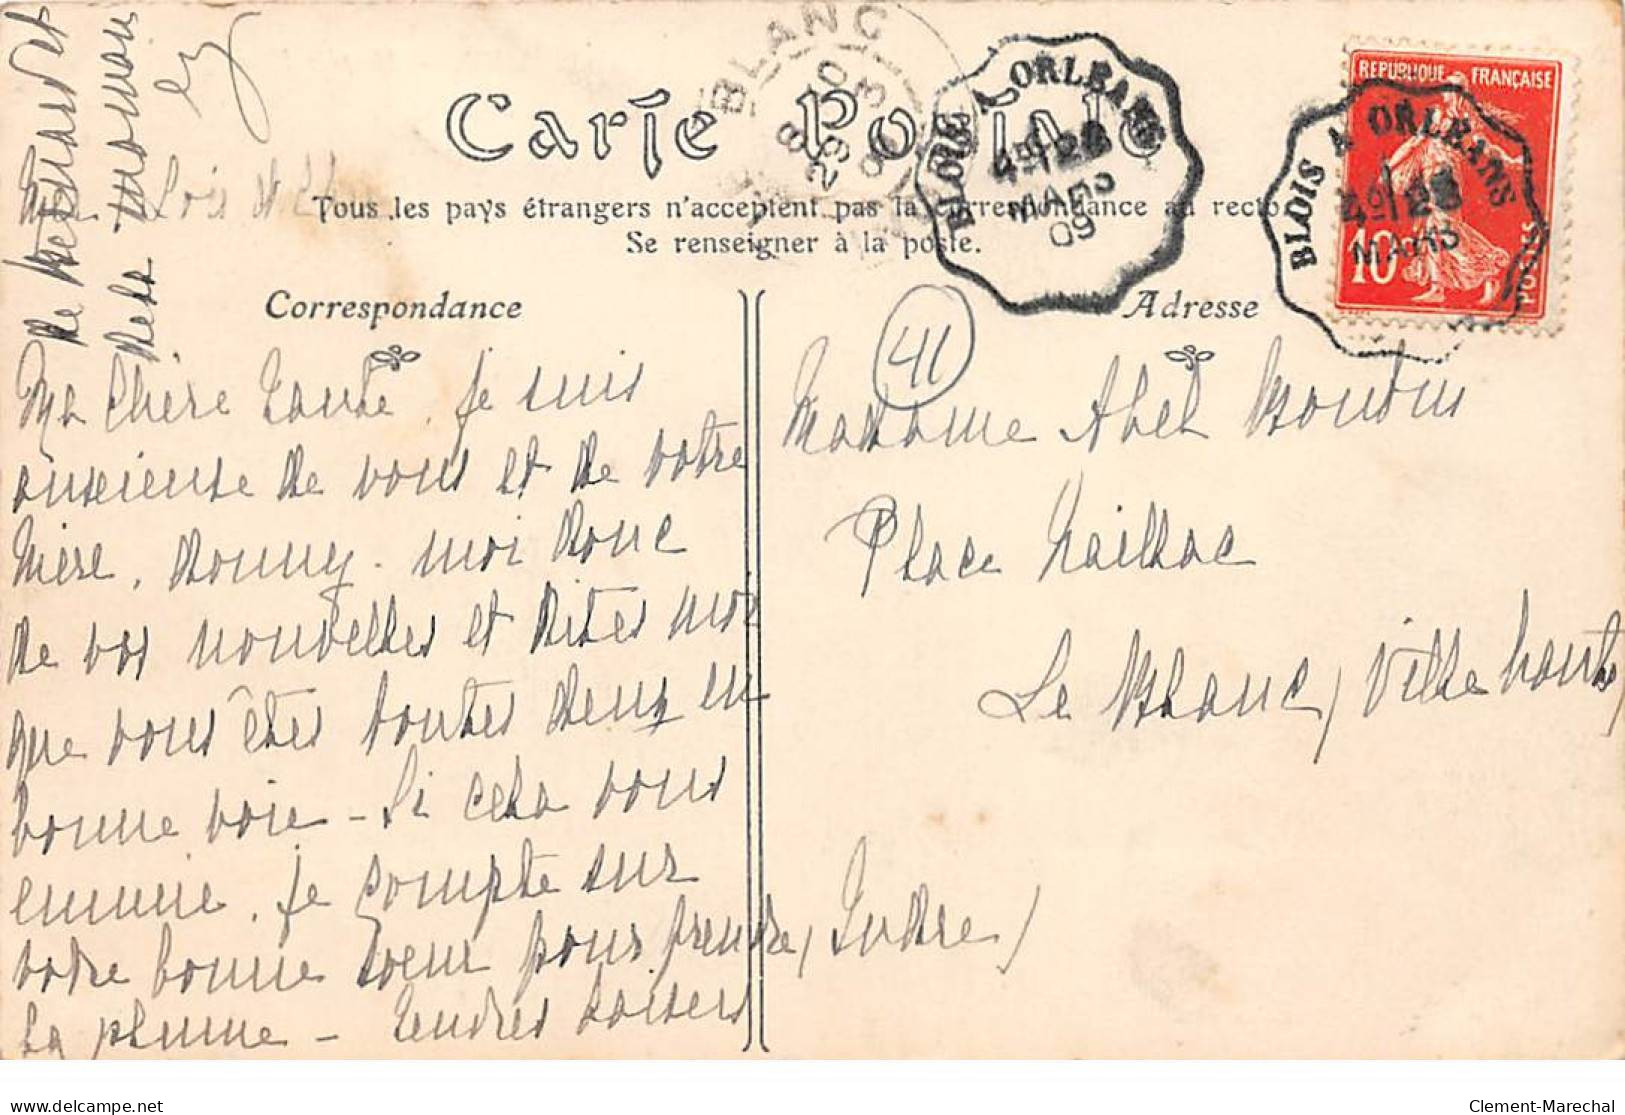 BLANC
29 3 09
BLOIS A ORLEANS
28
MARS
09
REPUBLIQUE FRANÇAISE
BLOIS A ORLEANS
28
MARS
10c
POSTES
Carte Postale
Tous les pays étrangers n'acceptent pas la correspondance au recto
Se renseigner à la poste.
Correspondance
Adresse
41
Ma chère tante, je suis
anxieuse de vous et de votre
mère, donnez-moi donc
de vos nouvelles et dites moi
que vous êtes toutes deux en
bonne voie - Si cela vous
ennuie, je compte sur
votre bonne soeur pour prendre
la plume - Tendres baisers
de et
de la maman
Loir et Ch
Madame Abel Boudin
Place Naillac
Le Blanc, (Ville haute)
(Indre)
delcampe.net
Clement-Marechal